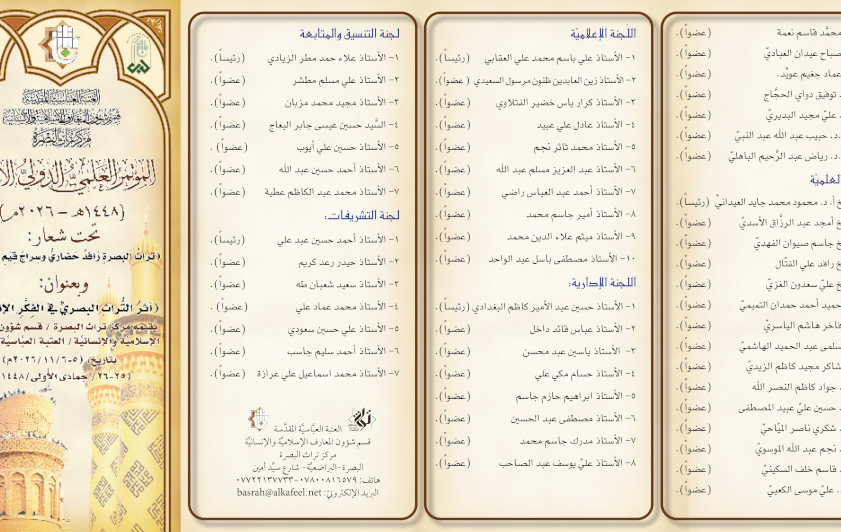 محمَّد قاسم نعمة (عضواً).
صباح عيدان العباديّ (عضواً).
عماد جغيم عويّد. (عضواً).
توفيق دواي الحجَّاج (عضواً).
عليّ مجيد البديريّ (عضواً).
.د. حبيب عبد الله عبد النبيّ (عضواً).
.د. رياض عبد الرَّحيم الباهليّ (عضواً).
العلميّة
أ. د. محمود محمد جايد العيدانيّ (رئيساً).
أمجد عبد الرزَّاق الأسديّ (عضواً).
جاسم صيوان الفهديّ (عضواً).
رافد علي الفتّال (عضواً).
عليّ سعدون الغزيّ (عضواً).
حميد أحمد حمدان التميميّ (عضواً).
فاخر هاشم الياسريّ (عضواً).
سلمى عبد الحميد الهاشميّ (عضواً).
شاكر مجيد كاظم الزيديّ (عضواً).
جواد كاظم النصر الله (عضواً).
حسين عليّ عبيد المصطفى (عضواً).
شكري ناصر الميّاحيّ (عضواً).
نجم عبد الله الموسويّ (عضواً).
قاسم خلف السكينيّ (عضواً).
. عليّ موسى الكعبيّ (عضواً).
اللّجنة الإعلاميّة
١- الأستاذ علي باسم محمد علي العقابي (رئيساً).
٢- الأستاذ زين العابدين طلنون مرسول السعيدي (عضواً).
٣- الأستاذ كرار ياس خضير الفتلاوي (عضواً).
٤- الأستاذ عادل علي عبيد (عضواً).
٥- الأستاذ محمد ثائر نجم (عضواً).
٦- الأستاذ عبد العزيز مسلم عبد الله (عضواً).
٧- الأستاذ أحمد عبد العباس راضي (عضواً).
٨- الأستاذ أمير جاسم محمد (عضواً).
٩- الأستاذ ميثم علاء الدين محمد (عضواً).
١٠- الأستاذ مصطفى باسل عبد الواحد (عضواً).
اللجنة الإدارية:
١- الأستاذ حسين عبد الأمير كاظم البغدادي (رئيساً).
٢- الأستاذ عباس قائد داخل (عضواً).
٣- الأستاذ ياسين عبد محسن (عضواً).
٤- الأستاذ حسام مكي علي (عضواً).
٥- الأستاذ ابراهيم حازم جاسم (عضواً).
٦- الأستاذ مصطفى عبد الحسين (عضواً).
٧- الأستاذ مدرك جاسم محمد (عضواً).
٨- الأستاذ عليّ يوسف عبد الصاحب (عضواً).
لجنة التنسيق والمتابعة
١- الأستاذ علاء حمد مطر الزيادي (رئيساً).
٢- الأستاذ علي مسلم مطشر (عضواً).
٣- الأستاذ مجيد محمد مزبان (عضواً).
٤- السَّيد حسين عيسى جابر البعاج (عضواً).
٥- الأستاذ حسين علي أيوب (عضواً).
٦- الأستاذ أحمد حسين عبد الله (عضواً).
٧- الأستاذ محمد عبد الكاظم عطية (عضواً).
لجنة التشريفات:
١- الأستاذ أحمد حسين عبد علي (رئيساً).
٢- الأستاذ حيدر رعد كريم (عضواً).
٣- الأستاذ سعيد شعبان طه (عضواً).
٤- الأستاذ محمد عماد علي (عضواً).
٥- الأستاذ علي حسين سعودي (عضواً).
٦- الأستاذ أحمد سليم جاسب (عضواً).
٧- الأستاذ محمد اسماعيل علي عرازة (عضواً).
العتبة العبّاسيّة المقدّسة
قسم شؤون المعارف الإسلاميّة والإنسانيّة
مركز تراث البصرة
البصرة-البراضعيّة- شارع سيّد أمين
هاتف: ٠٧٨٠٠٨١٦٥٧٩-٠٧٧٢٢١٣٧٧٣٣
البريد الإلكتروني: basrah@alkafeel.net
العتبة العباسية المقدسة
قسم شؤون المعارف الإسلامية والإنسانية
مركز تراث البصرة
المؤتمر العلميّ الدوليّ
(١٤٤٨هـ - ٢٠٢٦م)
تحت شعار:
(تراث البصرة رافد حضاريّ وسراج قيم
وبعنوان:
(أثر التُّراث البصريّ في الفكر
تقيمه مركز تراث البصرة / قسم شؤون
الإسلاميّة والإنسانيّة / العتبة العباسيّة
بتاريخ: (٥-٢٠٢٦/١١/٦م)
(٢٥-٢٦/ جمادى الأولى/١٤٤٨